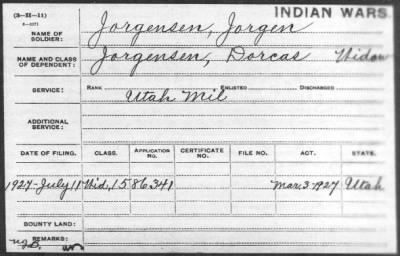 (3-H-11)
INDIAN WARS
NAME OF SOLDIER: Jorgensen, Jorgen
NAME AND CLASS OF DEPENDENT: Jorgensen, Dorcas Widow
SERVICE: RANK ENLISTED DISCHARGED
Utah Mil
ADDITIONAL SERVICE:
DATE OF FILING. CLASS. APPLICATION NO. CERTIFICATE NO. FILE NO. ACT. STATE.
1927-July 11 Wid, 1586341 Mar. 3-1927 Utah
BOUNTY LAND:
REMARKS: